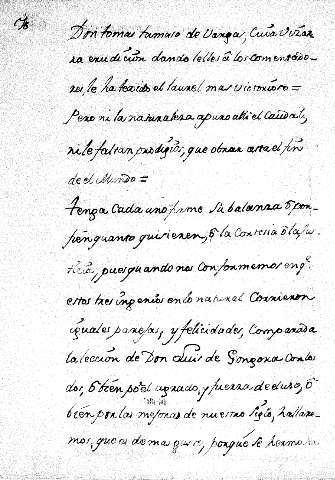 Don tomas tamaio de Vargas, Cuia Vizar
ra erudicion dando lelles â los comentado-
res, le ha texido el laurel mas victorioso =
Pero ni la naturaleza apuro alli el Caudal,
ni le faltan prodigios, que obrar asta el fin
de el Mundo =
tenga Cada uno firme Su balanza ô por-
fien quanto quisieren, ô la Cortesia ô la Jus
ticia, pues quando nos Conformemos en q.e
estos tres ingenios en lo natural Corrieron
iguales parejas, y felicidades, Comparada
la leccion de Don Luis de Gongora Con los
dos, ô bien por el agrado, y fuerza de el uso, ô
bien por las mejoras de nuestro Siglo, hallare-
mos, que es de mas gusto, porque Se hermo